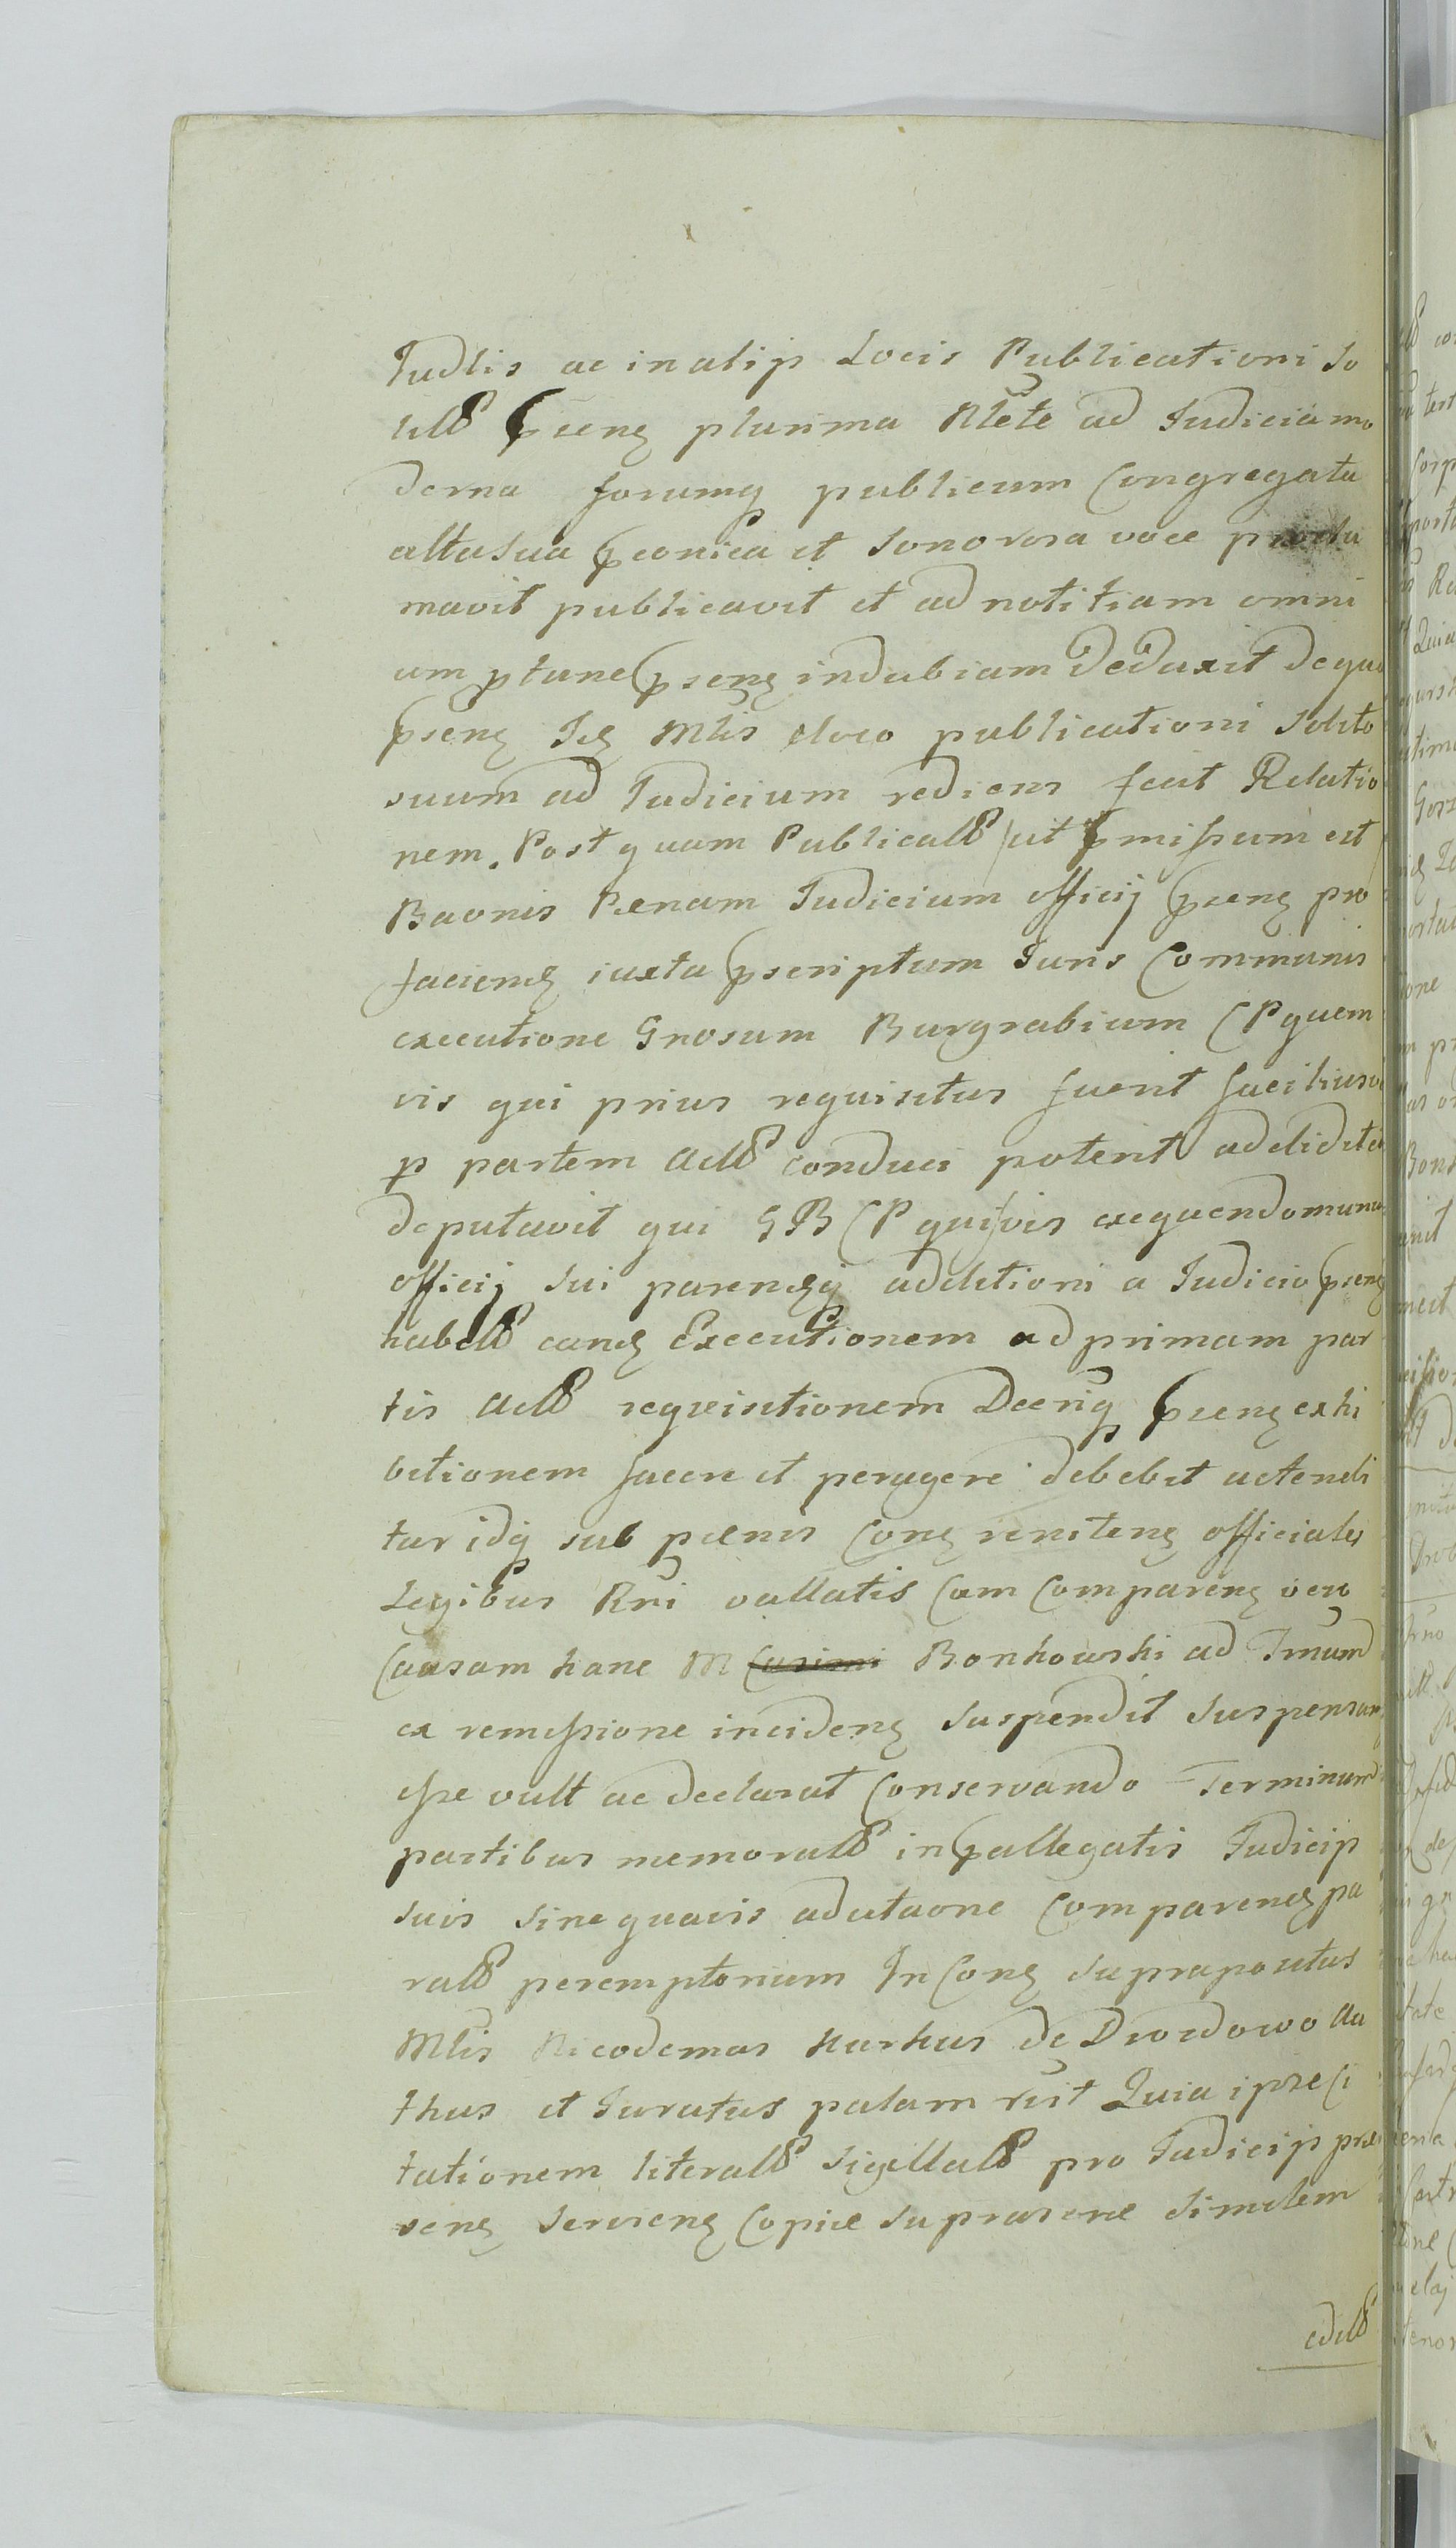 Judlis ac in alijs Locis Publicationi So
litt pseng plurima Nlete ad Judicia mo
derna forumq publicum Congregata
alta sua pconica et sonorosa voce procla
mavit publicavit et ad notitiam omni
um ptunc pseng indubiam deduxit de quo
pseng Jg Mlis eloco publicationi solito
suum ad Judicium rediens fecit Relatio
nem. Post quam Publicatt ut pmissum est
Baonis Pænam Judicium officij pseng pro
facieng iuxta pscriptum Juris Communis
executione Gnosum Burgrabium CP quem
vis qui prius requisitus fuerit faciliusq
p partem Actt conduci poterit addidit
deputavit qui GB CP quivis exequendo munus
officij sui parengq additioni a Judicio pseng
habitt eang Executionem ad primam par
tis Actt requisitionem Decriq pseng exhi
bitionem facere et peragere debebit ac tenebi
tur idq sub pænis Cong reniteng officiales
Legibus Rni vallatis Cum Compareng vero
Causam hanc M Casimi Bonkowski ad Tmum
ex remissione incideng suspendit suspensam
esse vult ac declarat Conservando Terminum
partibus memoratt in pallegatis Judicijs
suis sine quavis adcitaone Compareng pa
ratt peremptorium In Cong suprapositus
Mlis Nicodemus Kurkus de Drozdowo Au
thus et Juratus palam rcit Quia ipse Ci
tationem literatt sigillatt pro Judicijs præ
seng servieng Copiæ suprascræ similem
editt